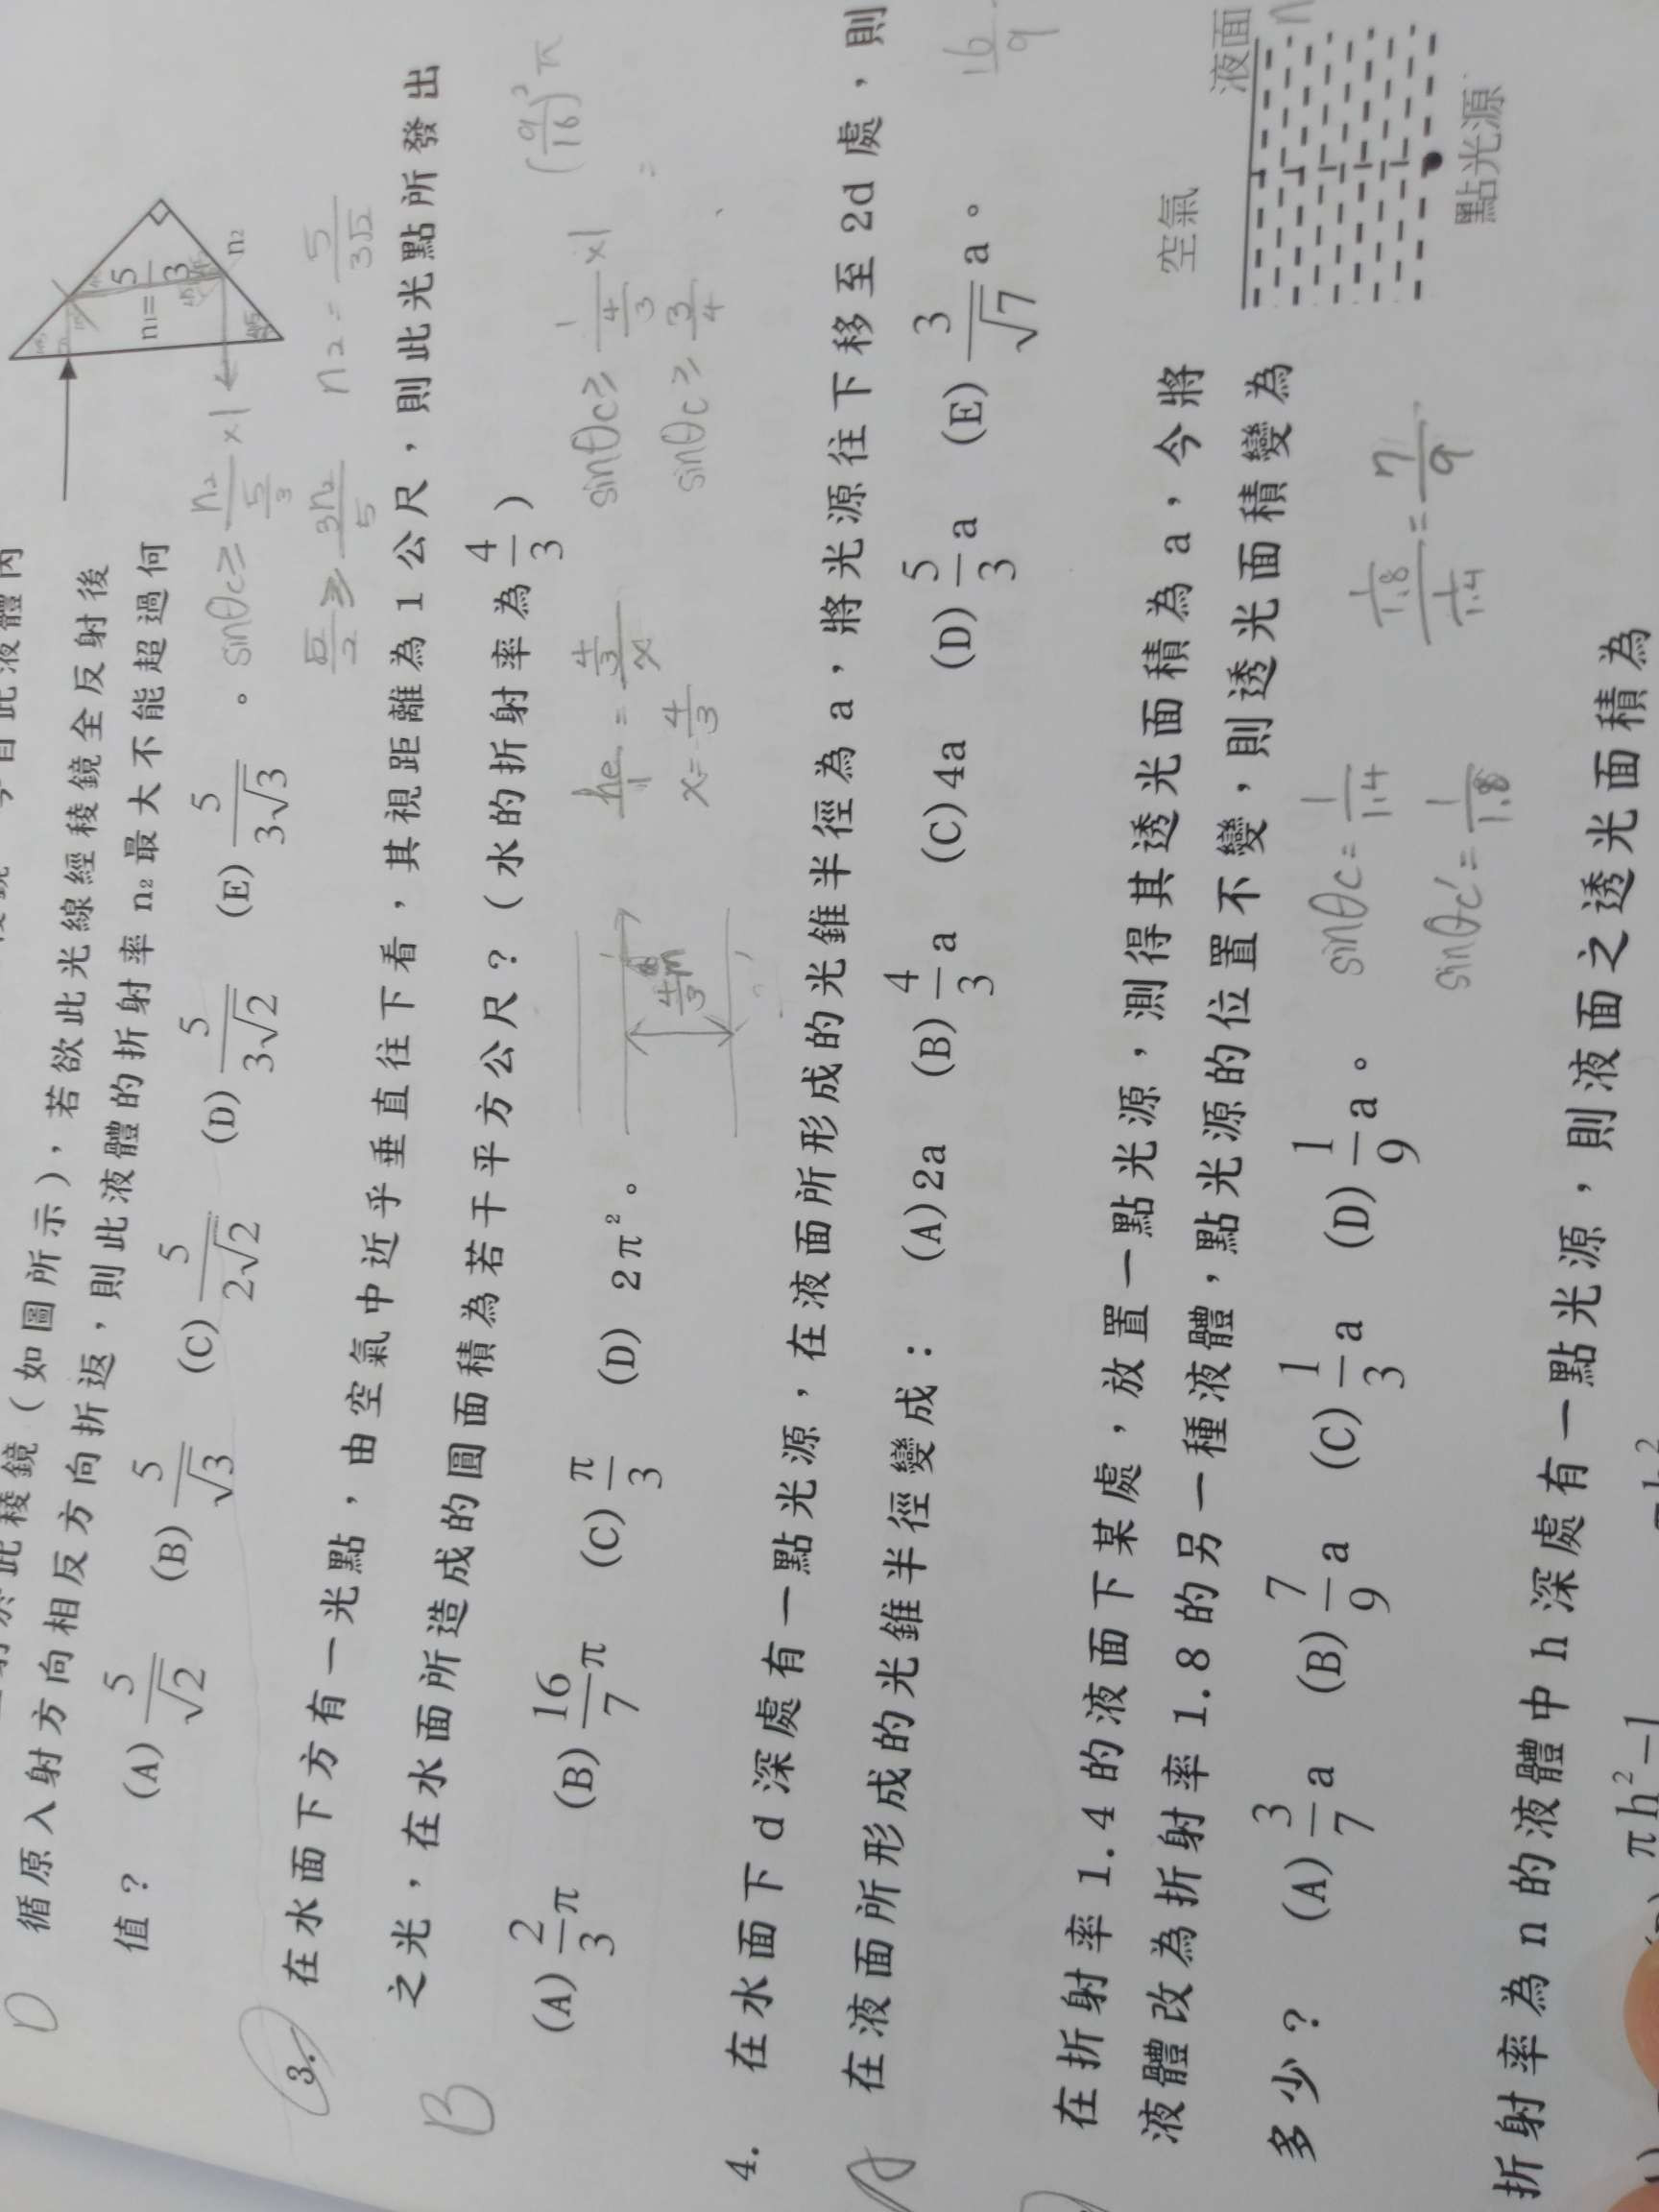 D 循原入射方向相反方向折返，則此液體的折射率 n₂ 最大不能超過何
此稜鏡（如圖所示），若欲此光線經稜鏡全反射後
值？ (A) 5/√2 (B) 5/√3 (C) 5/2√2 (D) 5/3√2 (E) 5/3√3 。
n₁= 5/3
n₂
sinθc ≥ n₂/(5/3) ×1
√2/2 ≥ 3n₂/5 n₂ = 5/3√2
3. 在水面下方有一光點，由空氣中近乎垂直往下看，其視距離為 1 公尺，則此光點所發出
B 之光，在水面所造成的圓面積為若干平方公尺？（水的折射率為 4/3）
(A) 2/3 π (B) 16/7 π (C) π/3 (D) 2π² 。
he/1 = (4/3)/x
x = 4/3
4/3 m
sinθc ≥ 1/(4/3) ×1
sinθc ≥ 3/4
(9/16)² π
4. 在水面下 d 深處有一點光源，在液面所形成的光錐半徑為 a，將光源往下移至 2d 處，則
A 在液面所形成的光錐半徑變成： (A) 2a (B) 4/3 a (C) 4a (D) 5/3 a (E) 3/√7 a 。
16/9
在折射率 1.4 的液面下某處，放置一點光源，測得其透光面積為 a，今將
液體改為折射率 1.8 的另一種液體，點光源的位置不變，則透光面積變為
多少？ (A) 3/7 a (B) 7/9 a (C) 1/3 a (D) 1/9 a 。
空氣
液面
n
點光源
sinθc = 1/1.4
sinθc' = 1/1.8
(1/1.8)/(1/1.4) = 7/9
折射率為 n 的液體中 h 深處有一點光源，則液面之透光面積為
πh²-1